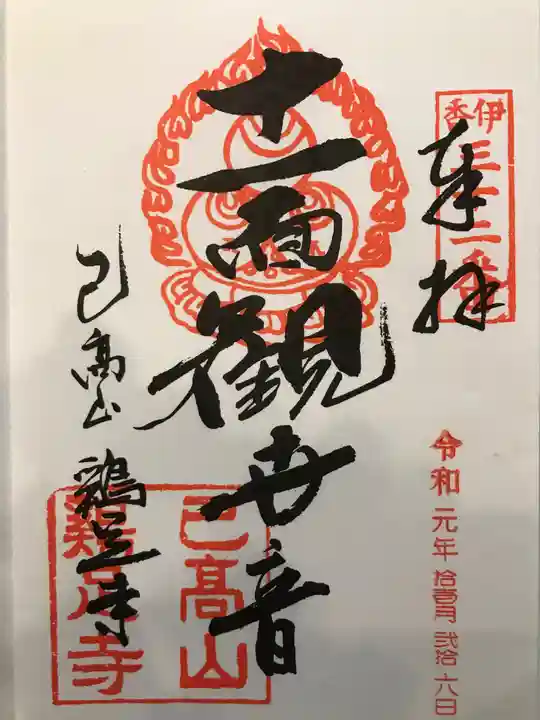 奉拝
伊香三十二番
令和元年拾壹月弐拾六日
十一面観世音
己高山
鶏足寺
己高山
鶏足寺